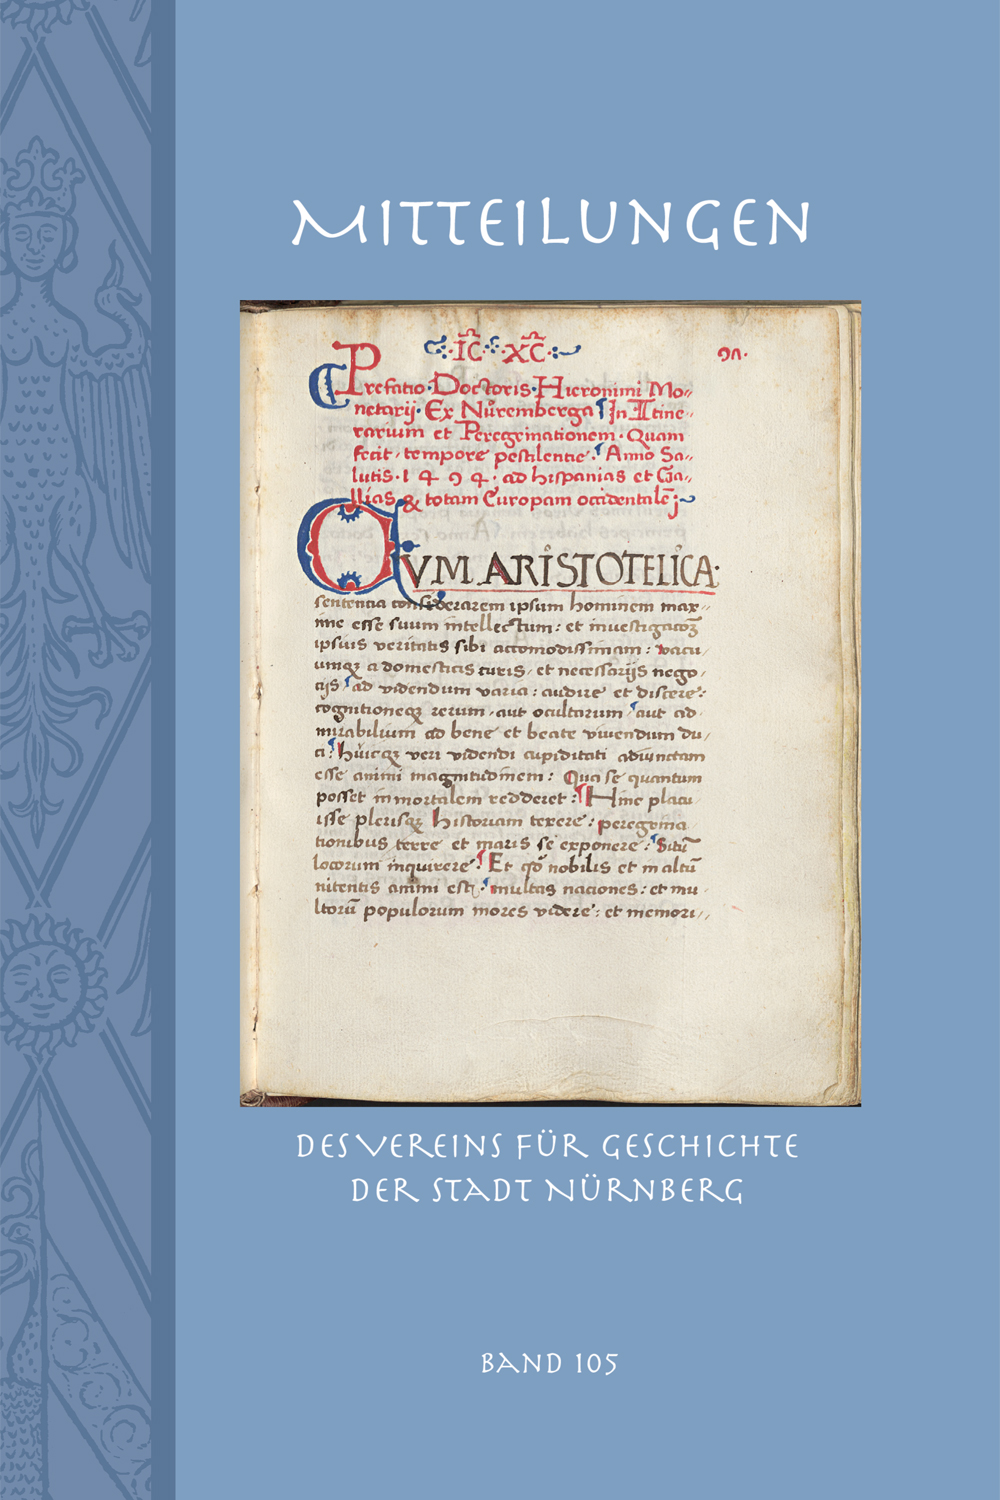 MITTEILUNGEN
·IC· ·XC·
97.
Prefatio·Doctoris·Hieronimi Mo„
netarij·Ex Nůremberga In Itine„
rarium et Peregrinationem·Quam
fecit·tempore pestilentie·Anno Sa„
lutis·1494·ad hispanias et Ga„
llias & totam Europam occidentalē;~
CVM ARISTOTELICA·
sententia considerarem ipsum hominem max„
ime esse suum intellectum: et
ipsius veritatis sibi accomodissimam: vacu,
umqꝫ a domesticis curis, et necessarijs nego,
cijs ad videndum varia: audire et discere:
cognitioneqꝫ rerum, aut ocultarum aut ad,
mirabilium ad bene et beate vivendum du,
ci: huicqꝫ veri videndi cupiditati adiunctam
esse animi magnitudinem: Qua se quantum
posset inmortalem redderet: Hinc placu,
isse plerisqꝫ historiam texere: peregrina
tionibus terre et maris se exponere: Sitū
locorum inquirere: Et qō nobilis et in altū
nitentis animi est: multas naciones: et mu,
ltorū populorum mores videre: et memori„
DES VEREINS FÜR GESCHICHTE
DER STADT NÜRNBERG
BAND 105